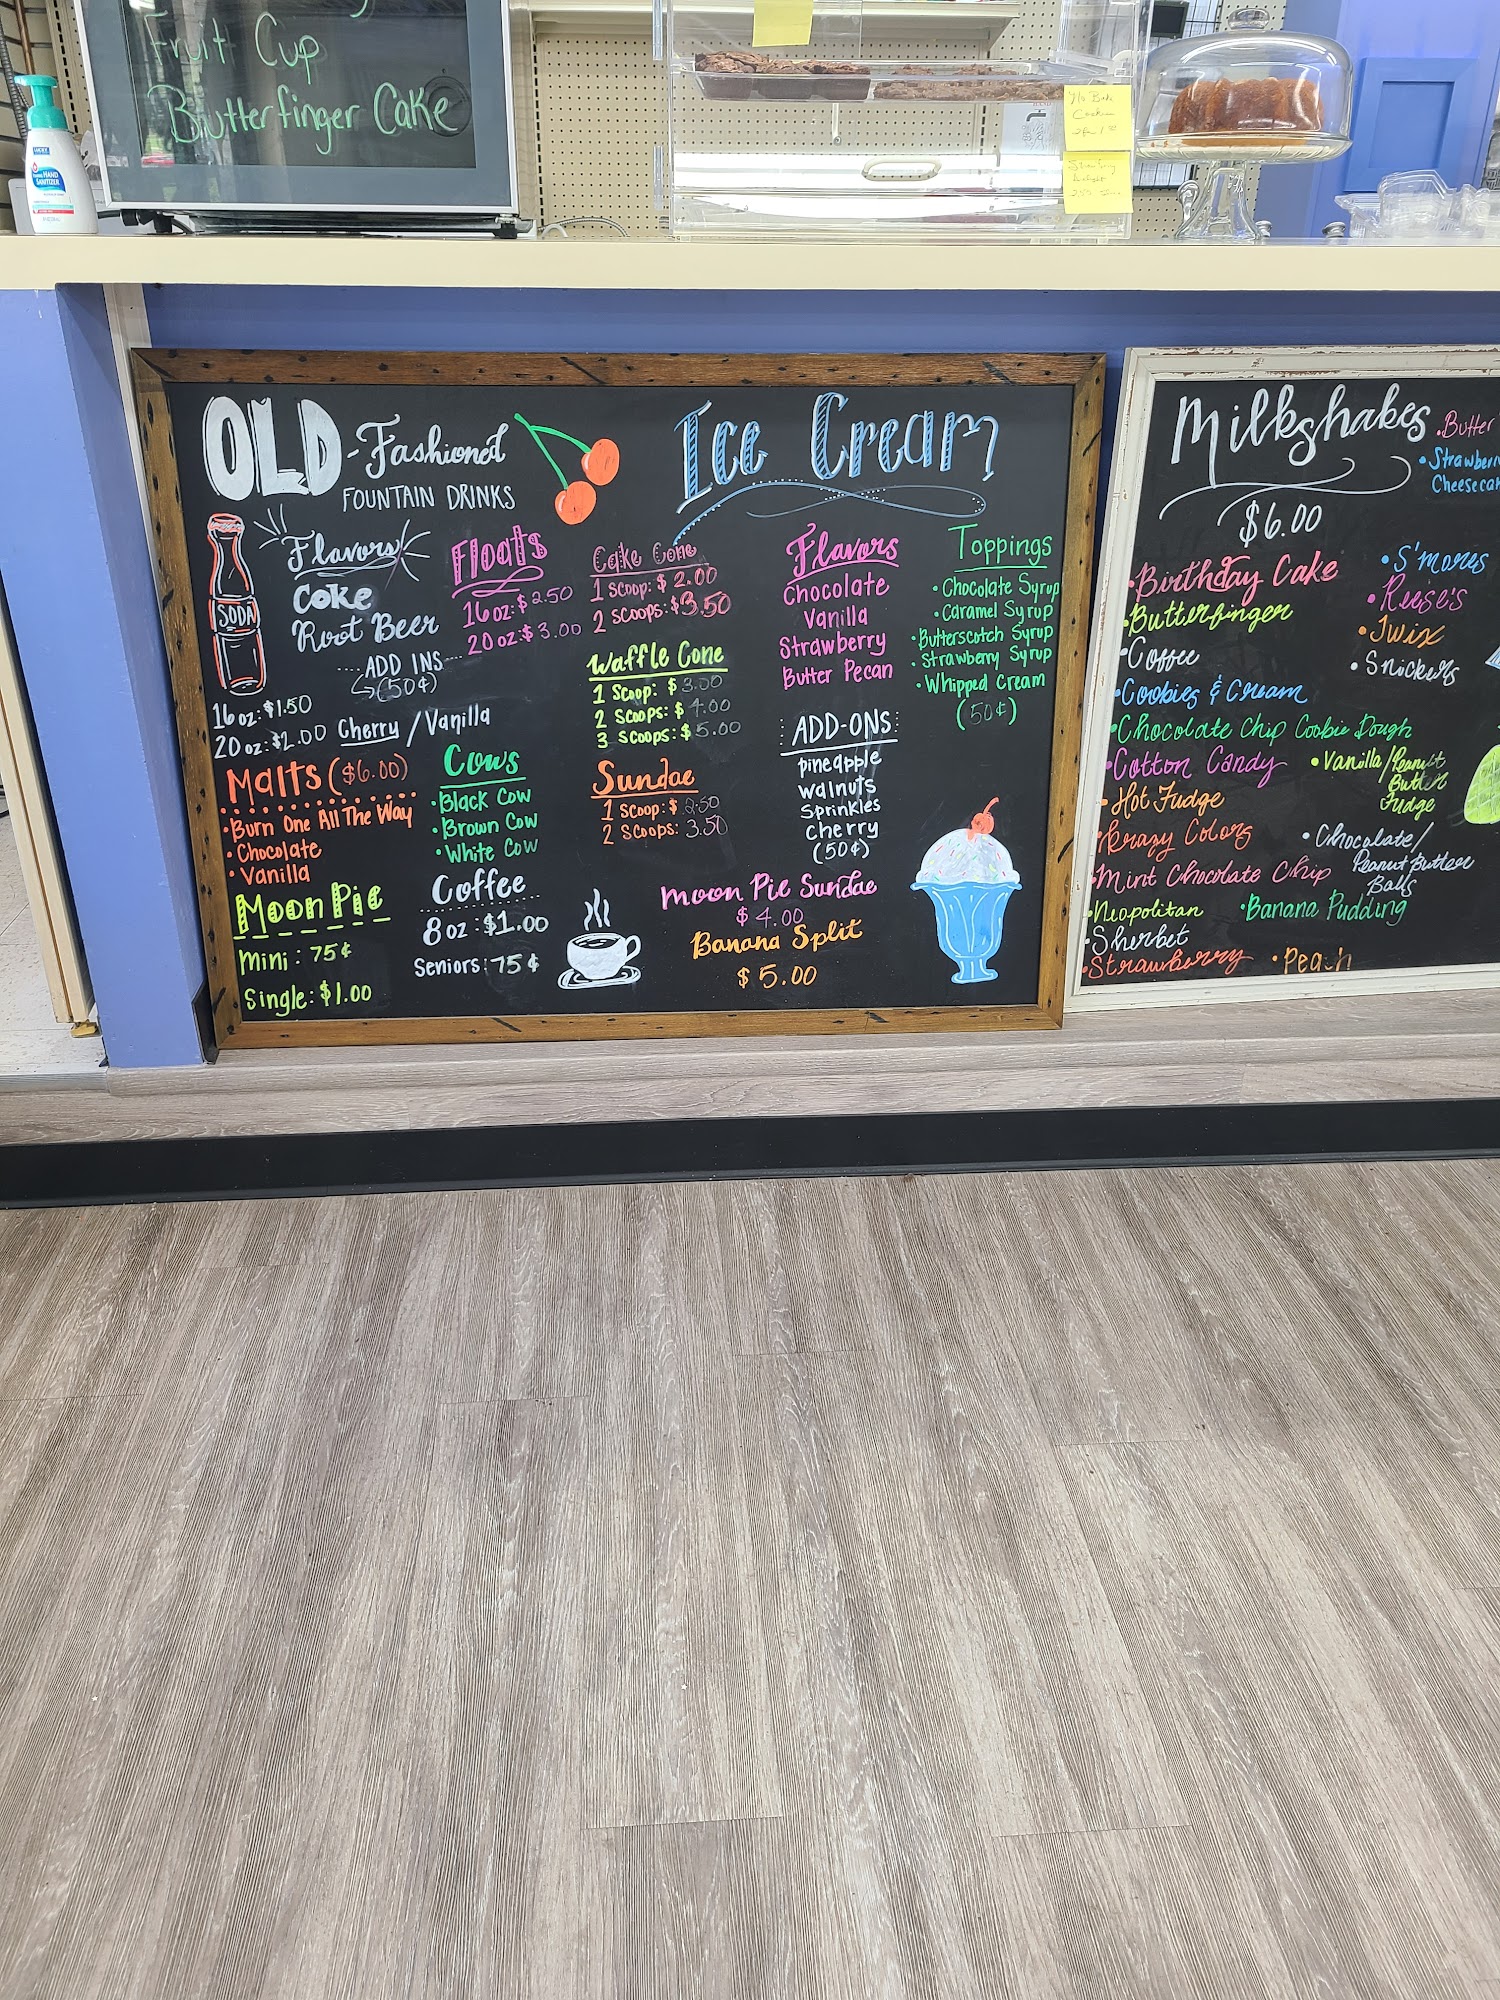 Fruit Cup
Butterfinger Cake
HAND
SANITIZER
OLD-Fashioned
FOUNTAIN DRINKS
Flavors
Coke
Root Beer
ADD INS
(50¢)
SODA
16 oz: $1.50
20 oz: $2.00
Cherry / Vanilla
Floats
16 oz: $2.50
20 oz: $3.00
Malts ($6.00)
• Burn One All The Way
• Chocolate
• Vanilla
Cows
• Black Cow
• Brown Cow
• White Cow
Moon Pie
Mini: 75¢
Single: $1.00
Coffee
8 oz: $1.00
Seniors: 75¢
Ice Cream
Cake Cone
1 Scoop: $2.00
2 Scoops: $3.50
Waffle Cone
1 Scoop: $3.00
2 Scoops: $4.00
3 Scoops: $5.00
Sundae
1 Scoop: $2.50
2 Scoops: 3.50
Flavors
Chocolate
Vanilla
Strawberry
Butter Pecan
ADD-ONS:
pineapple
walnuts
Sprinkles
Cherry
(50¢)
Toppings
• Chocolate Syrup
• Caramel Syrup
• Butterscotch Syrup
• Strawberry Syrup
• Whipped Cream
(50¢)
Moon Pie Sundae
$4.00
Banana Split
$5.00
Milkshakes
$6.00
• Butter
• Strawberry
Cheesecake
• Birthday Cake
• Butterfinger
• Coffee
• Cookies & Cream
• Chocolate Chip Cookie Dough
• Cotton Candy
• Hot Fudge
• Krazy Colors
• Mint Chocolate Chip
• Neopolitan
• Sherbet
• Strawberry
• S'mores
• Reese's
• Twix
• Snickers
• Vanilla/Peanut
Butter
Fudge
• Chocolate/
Peanut Butter
Balls
• Banana Pudding
• Peach